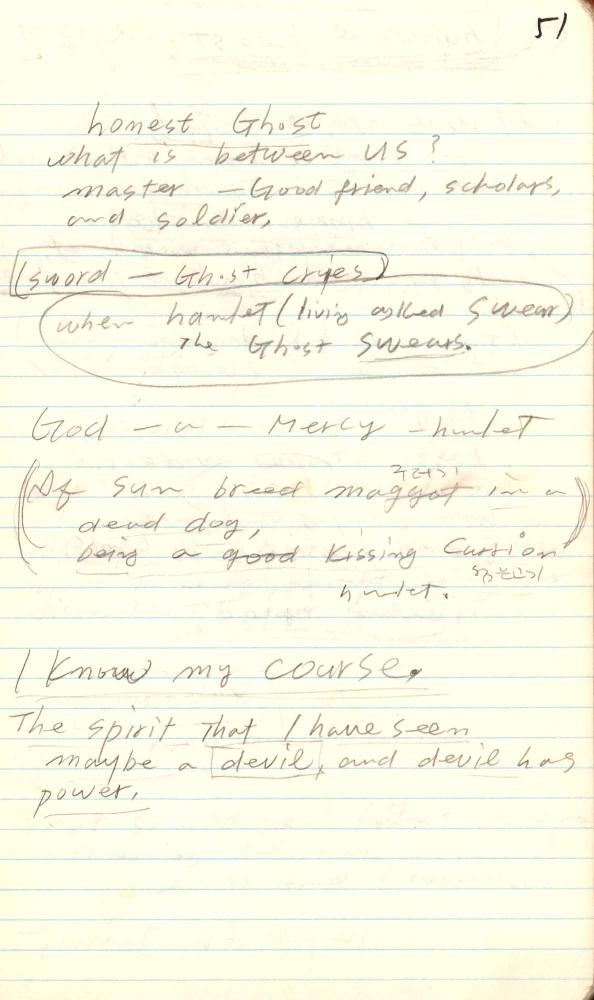 51
honest Ghost
what is between us?
master — Good friend, scholars,
and soldier,
(sword — Ghost cries)
when hamlet (living asked swear)
The Ghost swears.
God — a — Mercy - hamlet
구더기
(If sun breed maggot in a
dead dog,
being a good kissing Carrion)
썩은고기
hamlet.
I know my course.
The spirit that I have seen
maybe a devil, and devil has
power,